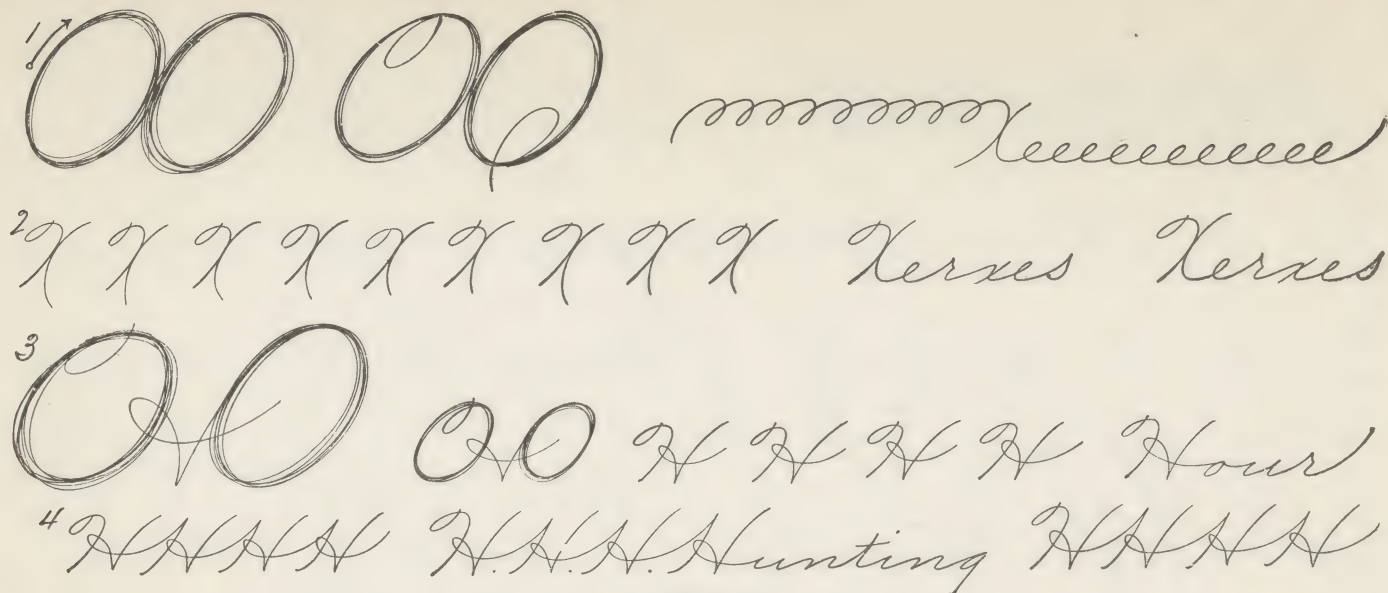 1
2 X X X X X X X X X Xerxes Xerxes
3 H H H H Hour
4 H H H H H. H. H. Hunting H H H H